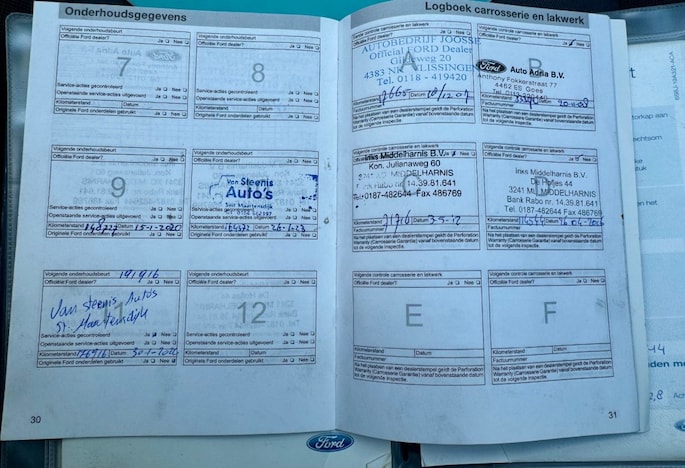 Onderhoudsgegevens
Volgende onderhoudsbeurt
Officiële Ford dealer? Ja Nee
7
Service-acties gecontroleerd Ja Nee
Openstaande service-acties uitgevoerd Ja Nee
Kilometerstand Datum
Originele Ford onderdelen gebruikt Ja Nee
Volgende onderhoudsbeurt
Officiële Ford dealer? Ja Nee
8
Service-acties gecontroleerd Ja Nee
Openstaande service-acties uitgevoerd Ja Nee
Kilometerstand Datum
Originele Ford onderdelen gebruikt Ja Nee
Volgende onderhoudsbeurt
Officiële Ford dealer? Ja Nee
9
Service-acties gecontroleerd Ja Nee
Openstaande service-acties uitgevoerd Ja Nee
Kilometerstand Datum 15-1-2020
Originele Ford onderdelen gebruikt Ja Nee
Volgende onderhoudsbeurt
Officiële Ford dealer? Ja Nee
Van Steenis
Auto's
Sint Maartensdijk
Service-acties gecontroleerd Ja Nee
Openstaande service-acties uitgevoerd Ja Nee
Kilometerstand Datum 26-1-23
Originele Ford onderdelen gebruikt Ja Nee
Volgende onderhoudsbeurt
Officiële Ford dealer? Ja Nee
11
Van Steenis Auto's
St. Maartensdijk
Service-acties gecontroleerd Ja Nee
Openstaande service-acties uitgevoerd Ja Nee
Kilometerstand Datum
Originele Ford onderdelen gebruikt Ja Nee
Volgende onderhoudsbeurt
Officiële Ford dealer? Ja Nee
12
Service-acties gecontroleerd Ja Nee
Openstaande service-acties uitgevoerd Ja Nee
Kilometerstand Datum
Originele Ford onderdelen gebruikt Ja Nee
30
Logboek carrosserie en lakwerk
Volgende controle carrosserie en lakwerk
Officiële Ford dealer? Ja Nee
A
AUTOBEDRIJF JOOSSE
Official FORD Dealer
Gildeweg 20
4383 NK VLISSINGEN
Tel. 0118 - 419420
Datum
Factuurnummer
Na het plaatsen van een dealerstempel geldt de Perforation
Warranty (Carrosserie Garantie) vanaf bovenstaande datum
tot de volgende inspectie.
Officiële Ford dealer? Ja Nee
B
Ford Auto Adria B.V.
Anthony Fokkerstraat 77
4462 ES Goes
Kilometerstand Datum 20-11-08
Factuurnummer
Na het plaatsen van een dealerstempel geldt de Perforation
Warranty (Carrosserie Garantie) vanaf bovenstaande datum
tot de volgende inspectie.
Volgende controle carrosserie en lakwerk
Inks Middelharnis B.V.
Kon. Julianaweg 60
3241 XB MIDDELHARNIS
Bank Rabo nr. 14.39.81.641
Tel:0187-482644 Fax 486769
Kilometerstand Datum 3-5-12
Factuurnummer
Na het plaatsen van een dealerstempel geldt de Perforation
Warranty (Carrosserie Garantie) vanaf bovenstaande datum
tot de volgende inspectie.
Volgende controle carrosserie en lakwerk
Officiële Ford dealer? Ja Nee
D
Inks Middelharnis B.V.
De Hofjes 44
3241 ML MIDDELHARNIS
Bank Rabo nr. 14.39.81.641
Tel:0187-482644 Fax 486769
Kilometerstand Datum
Factuurnummer
Na het plaatsen van een dealerstempel geldt de Perforation
Warranty (Carrosserie Garantie) vanaf bovenstaande datum
tot de volgende inspectie.
Volgende controle carrosserie en lakwerk
Officiële Ford dealer? Ja Nee
E
Kilometerstand Datum
Factuurnummer
Na het plaatsen van een dealerstempel geldt de Perforation
Warranty (Carrosserie Garantie) vanaf bovenstaande datum
tot de volgende inspectie.
Volgende controle carrosserie en lakwerk
Officiële Ford dealer? Ja Nee
F
Kilometerstand Datum
Factuurnummer
Na het plaatsen van een dealerstempel geldt de Perforation
Warranty (Carrosserie Garantie) vanaf bovenstaande datum
tot de volgende inspectie.
31
Ford